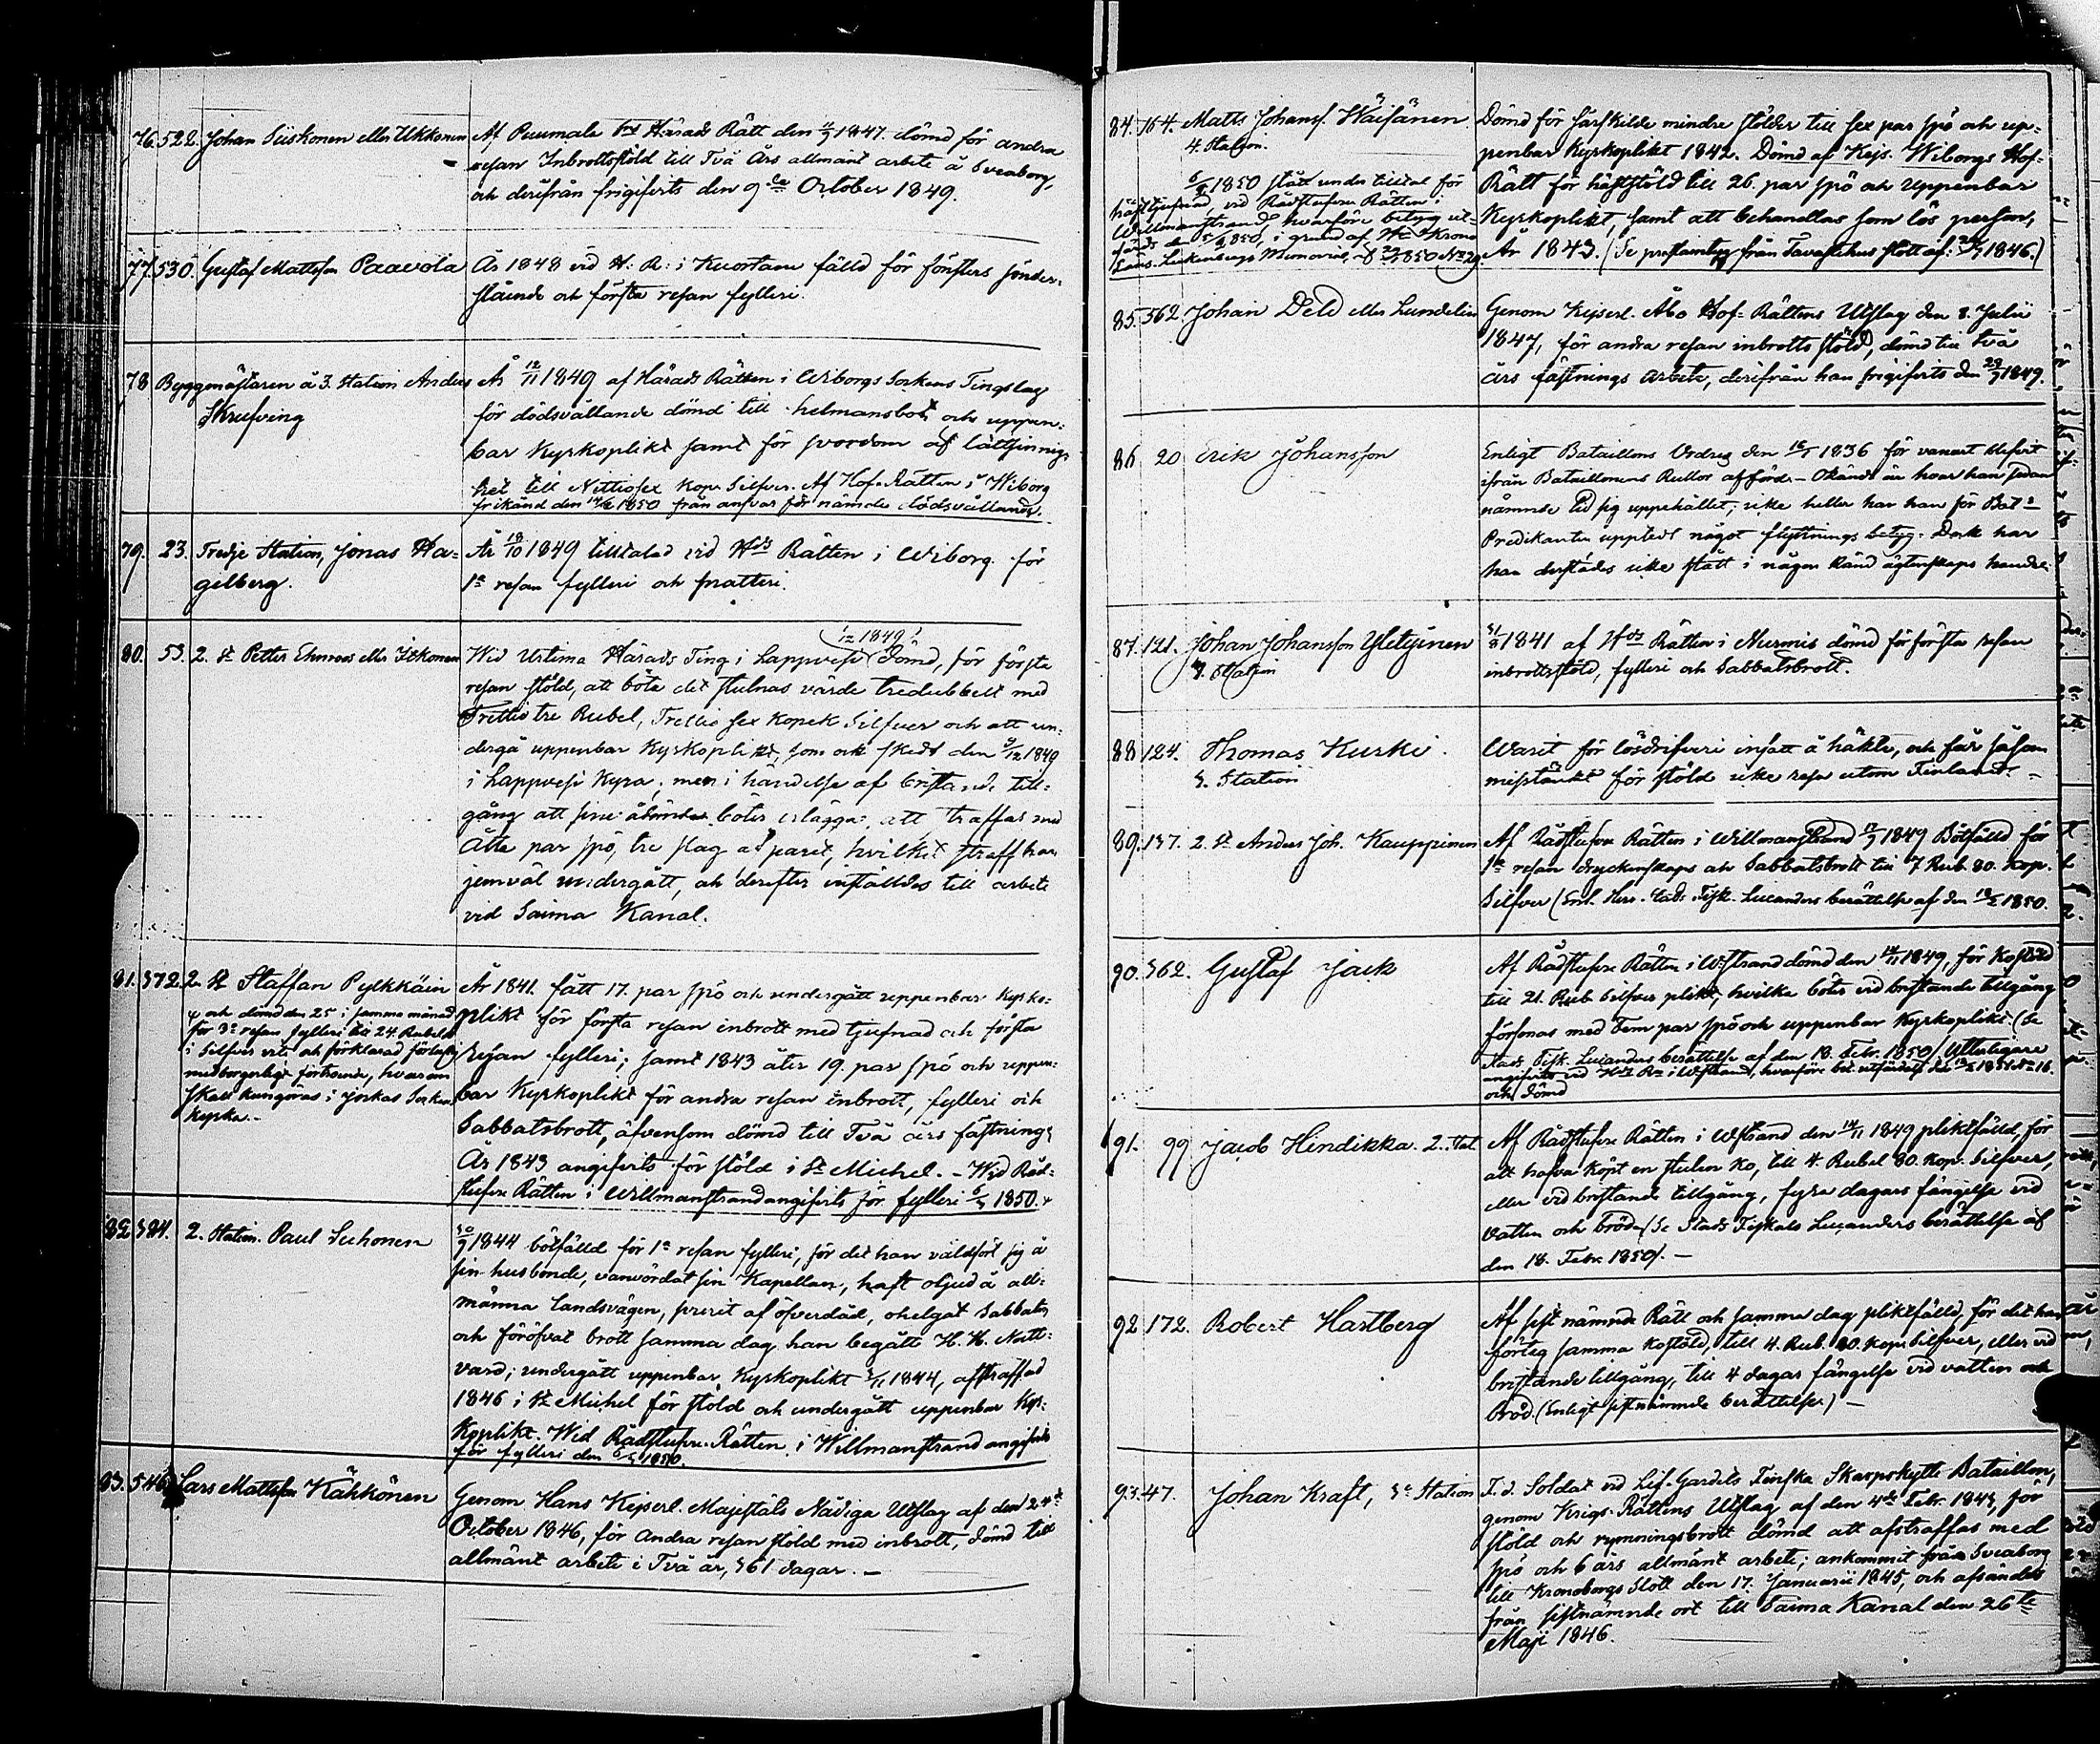 76. 522. Johan Siiskonen eller Ukkonen
Af Puumala Sn Härads Rätt den 1847 dömd för andra
resan Inbrottsstöld till Två Års allmänt arbete å Sveaborg,
och derifrån frigifvits den 9de October 1849.
77. 530. Gustaf Mattsson Paavola
År 1848 vid H: R: i Kuortane fälld för fönsters sönder-
slående och första resan fylleri.
78 Byggmästaren å 3. Station Anders
Skrufving
År 12/11 1849 af Härads Rätten i Wiborgs Sockens Tingslag
för dödsvållande dömd till helmansbot och uppen-
bar Kyrkoplikt samt för svordom af lättsinnig-
het till Nittiosex kop. Silfver. Af Hof-Rätten i Wiborg
frikänd den 1850 från ansvar för nämde dödsvållande.
79. 23. Tredje Station, Jonas Ha-
gelberg.
År 18/10 1849 tilltalad vid Hds Rätten i Wiborg för
1a resan fylleri och snatteri.
80. 53. 2. St Petter Ehnroos eller Itkonen
(12 1849)
Wid Urtima Härads Ting i Lappvesi dömd, för första
resan stöld, att böta det stulnas värde tredubbelt med
Trettiotre Rubel, Trettiosex Kopek Silfver och att un-
dergå uppenbar Kyrkoplikt, som ock skedt den 9/12 1849
i Lappvesi Kyrka; men i händelse af bristande till-
gång att sine ådömda böter erlägga, att straffas med
Åtta par spö, tre slag af paret, hvilket straff han
jemväl undergått, och derefter inställdes till arbete
vid Saima Kanal.
81. 372 2. St Staffan Pylkkäin
och dömd den 25 i samma månad
för 3e resan fylleri till 24. Rubels
i Silfver vite och förklarad förlustig
medborgerligt förtroende, hvarom
skall kungöras i Jockas Sockens
kyrka.-
År 1841. fått 17. par spö och undergått uppenbar Kyrko-
plikt för första resan inbrott med tjufnad och första
resan fylleri; samt 1843 åter 19. par spö och uppen-
bar Kyrkoplikt för andra resan inbrott, fylleri och
Sabbatsbrott, äfvensom dömd till Två års fästning;
År 1843 angifvits för stöld i St Michel. - Wid Råd-
stufvu Rätten i Willmanstrand angifvits för fylleri 1850.
82 384. 2. Station. Paul Suhonen
30/9 1844 bötfälld för 1a resan fylleri, för det han våldfört sig å
sin husbonde, vanvördat sin Kapellan, haft oljud å all-
männa landsvägen, svurit af öfverdåd, ohelgat Sabbaten
och föröfvat brott samma dag han begått H. H. Natt-
vard; undergått uppenbar Kyrkoplikt 3/11 1844, afstraffad
1846 i St Michel för stöld och undergått uppenbar Kyr-
koplikt. Wid Rådstufvu-Rätten i Willmanstrand angifvits
för fylleri den 1850.
83. 546 Lars Mattsson Kähkönen
Genom Hans Kejserl. Majestäts Nådiga Utslag af den 24de
October 1846, för Andra resan stöld med inbrott, dömd till
allmänt arbete i Två år, 361 dagar. -
84. 164. Matts Johanss. Wäisänen
4. Station.
1850 stått under tilltal för
hästtjufnad vid Rådstufvu Rätten i
Willmanstrand hvarföre betyg ut-
färds den 1850, i grund af Krono
Läns. Memorial af 1850 No 29.
Dömd för särskilde mindre stölder till sex par spö och up-
penbar Kyrkoplikt 1842. Dömd af Kejs. Wiborgs Hof-
Rätt för häststöld till 26. par spö och Uppenbar
Kyrkoplikt, samt att behandlas som lös person,
År 1843. (Se prestbetyg från Tavastehus slott af: 1846.)
85. 562. Johan Deld eller Lundelin
Genom Kejserl. Åbo Hof-Rättens Utslag den 8. Julii
1847, för andra resan inbrotts stöld, dömd till två
års fästnings Arbete, derifrån han frigifvits den 29/9 1849.
86 20 Erik Johansson
Enligt Bataillons Ordres den 1836 för vanart blifvit
ifrån Bataillonens Rullor afförd. - Okändt är hvar han sedan
nämnde tid sig uppehållit; icke heller har han för Bat-
Predikanten upptedt något flyttnings betyg. Dock har
han derstädes icke stått i någon känd ägtenskaps handel.
87. 121. Johan Johansson Yletyinen
3. Station
31/8 1841 af Hds Rätten i Nurmis dömd för första resan
inbrottsstöld, fylleri och Sabbatsbrott.
88 124. Thomas Kurki.
3. Station
Warit för lösdrifveri insatt å häkte, och får såsom
misstänkt för stöld icke resa utom Finland. -
89. 137. 2. St Anders Joh. Kauppinen
Af Rådstufvu Rätten i Willmanstrand 1849 Bötfälld för
1a resan dryckenskaps och Sabbatsbrott till 7 Rub. 80. Kop.
Silfver (Enl. Herr Stads Fisk. Lucanders berättelse af den 18/2 1850.
90. 362. Gustaf Jack
Af Rådstufvu Rätten i Wstrand dömd den 14/11 1849, för Kostöld
till 21. Rub. Silfver plikt, hvilka böter vid bristande tillgång
försonas med Fem par spö och uppenbar Kyrkoplikt (Se
Stads Fisk. Lucanders berättelse af den 18. Febr. 1850) Ytterligare
angifvits vid i Wstrand, hvarföre bet. utfärdats den 1851 No 16.
och dömd
91. 99 Jacob Hindikka. 2. Stat.
Af Rådstufvu Rätten i Wstrand den 14/11 1849 pliktfälld, för
att hafva köpt en stulen ko, till 4. Rubel 80. Kop. Silfver,
eller vid bristande tillgång, fyra dagars fängelse vid
vatten och bröd (Se Stads Fiskals Lucanders berättelse af
den 18. Febr. 1850). -
92 172. Robert Hartberg
Af sist nämnde Rätt och samma dag pliktfälld, för det han
förteg samma kostöld, till 4. Rub. 80. kop. Silfver, eller vid
bristande tillgång, till 4 dagar fängelse vid vatten och
bröd. (Enligt sistnämnde berättelse) -
93. 47. Johan Kraft, 3e Station
F.d. Soldat vid Lif-Gardets Finska Skarpskytte Bataillon,
genom Krigs-Rättens Utslag af den 4de Febr. 1843, för
stöld och rymningsbrott dömd att afstraffas med
spö och 6 års allmänt arbete; ankommit från Sveaborg
till Kronoborgs Slott den 17. Januarii 1845, och afsändes
från sistnämnde ort till Saima Kanal den 26te
Maji 1846.